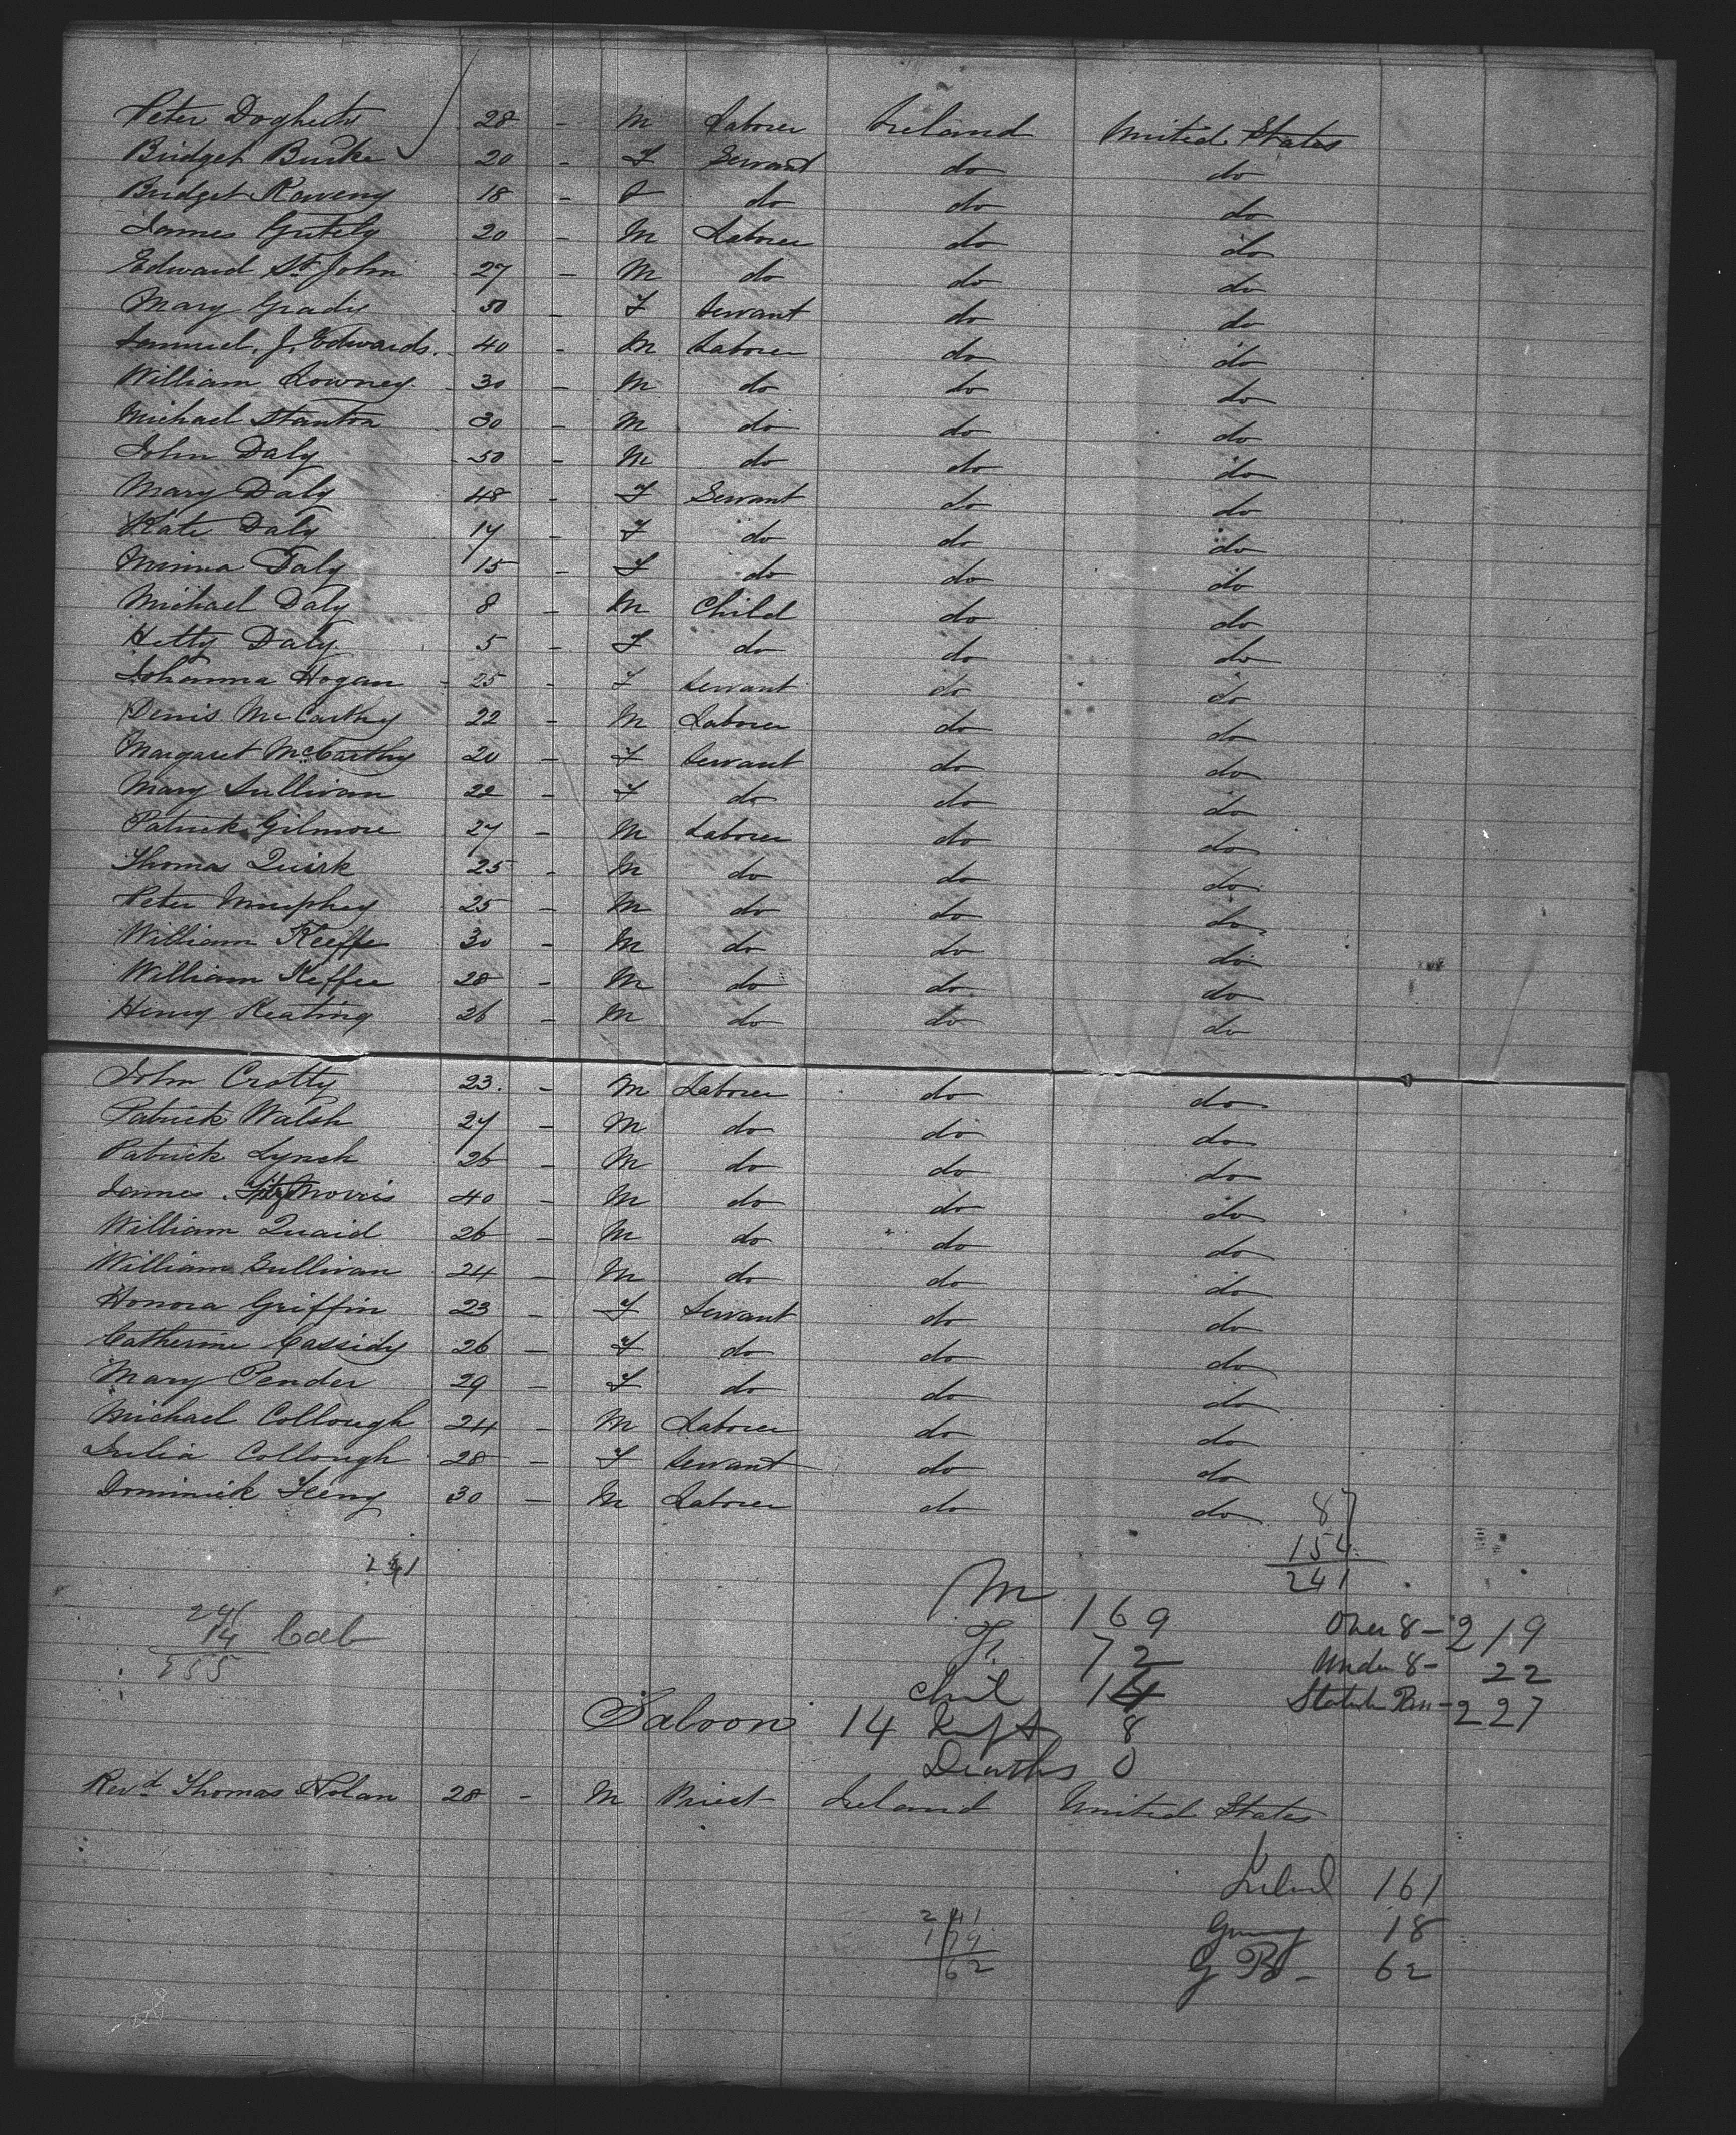 Peter Dogherty 28 - M Laborer Ireland United States
Bridget Burke 20 - F Servant do do
Bridget Raweny 18 - F do do do
James 20 - M Laborer do do
Edward St John 27 - M do do do
Mary Grady 50 - F Servant do do
Samuel J. Edwards. 40 - M Laborer do do
William Lowney 30 - M do do do
Michael Stanton 30 - M do do do
John Daly 50 - M do do do
Mary Daly 48 - F Servant do do
Kate Daly 17 - F do do do
Minna Daly 15 - F do do do
Michael Daly 8 - M Child do do
Hetty Daly 5 - F do do do
Johanna Hogan 25 - F Servant do do
Denis McCarthy 22 - M Laborer do do
Margaret McCarthy 20 - F Servant do do
Mary Sullivan 22 - F do do do
Patrick Gilmore 27 - M Laborer do do
Thomas Quirk 25 - M do do do
Peter Murphey 25 - M do do do
William Keeffe 30 - M do do do
William Keffee 28 - M do do do
Henry Keating 26 - M do do do
John Crotty 23. - M Laborer do do
Patrick Walsh 27 - M do do do
Patrick Lynch 26 - M do do do
James FitzMorris 40 - M do do do
William Quaid 26 - M do do do
William Sullivan 24 - M do do do
Honora Griffin 23 - F Servant do do
Catherine Cassidy 26 - F do do do
Mary Pender 29 - F do do do
Michael Collough 24 - M Laborer do do
Julia Collough 28 - F Servant do do
Dominick Feeny 30 - M Laborer do do
87
154
241
241
M 169 Over 8 - 219
241
14 Cab
255
F. 72 Under 8 - 22
Chil 14 Statute - 227
Saloon 14 Inft 8
Deaths 0
Revd. Thomas Nolan 28 - M Priest Ireland United States
Ireland 161
241
179
62
Germy 18
G B - 62